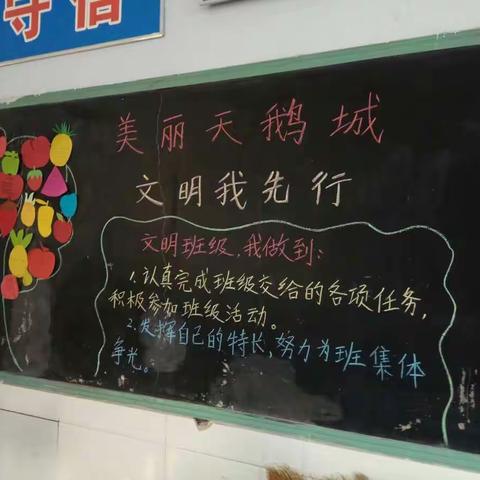 守信
美丽天鹅城
文明我先行
文明班级,我做到:
1.认真完成班级交给的各项任务,
积极参加班级活动。
2.发挥自己的特长,努力为班集体
争光。